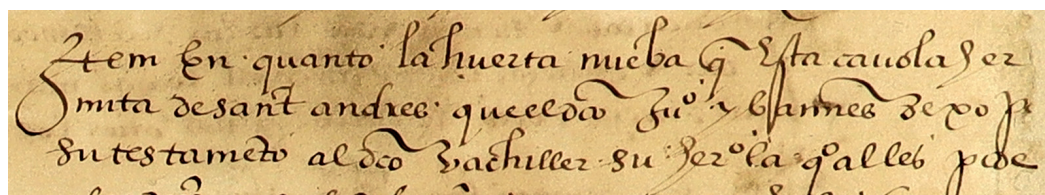 Ytem En quanto la huerta nueba q̃ Esta cavo la her
mita de sant andres que el dc̃o Juº ybannes dexo p̱
su testamẽto al dc̃o bachiller su herº la qºal les pide